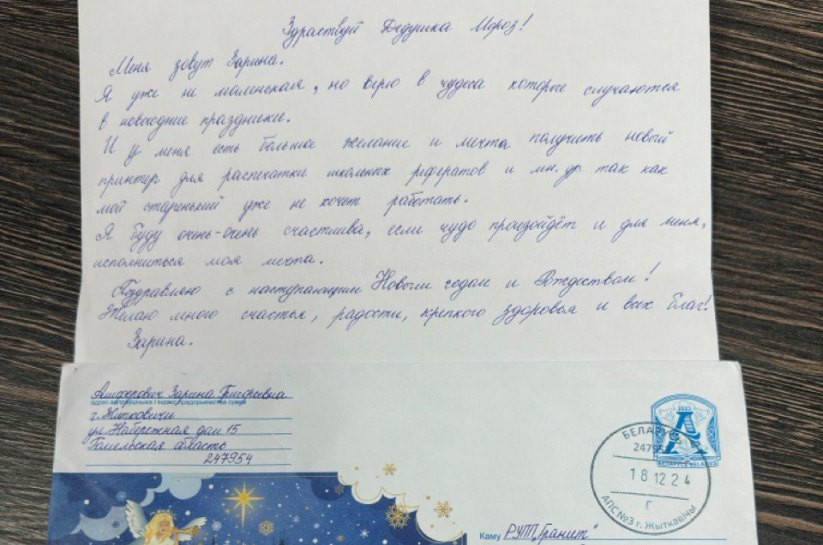 Здраствуй Дедушка Мороз!
Меня зовут Зарина.
Я уже не маленькая, но верю в чудеса которые случаются
в новогодние праздники.
И у меня есть большое желание и мечта получить новый
принтер для распечатки школьных рефератов и мн. др так как
мой старенький уже не хочет работать.
Я буду очень-очень счастлива, если чудо произойдёт и для меня,
исполниться моя мечта.
Поздравляю с наступающим Новым годом и Рождеством!
Желаю много счастья, радости, крепкого здоровья и всех благ!
Зарина.
Зарина Григорьевна
г. Житковичи
ул. Набережная дом 15
Гомельская область
247954
2023
А
БЕЛАРУСЬ
2479
18 12 24
г
АПС №3 г. Жыткавічы
Кому РУПП "Гранит"